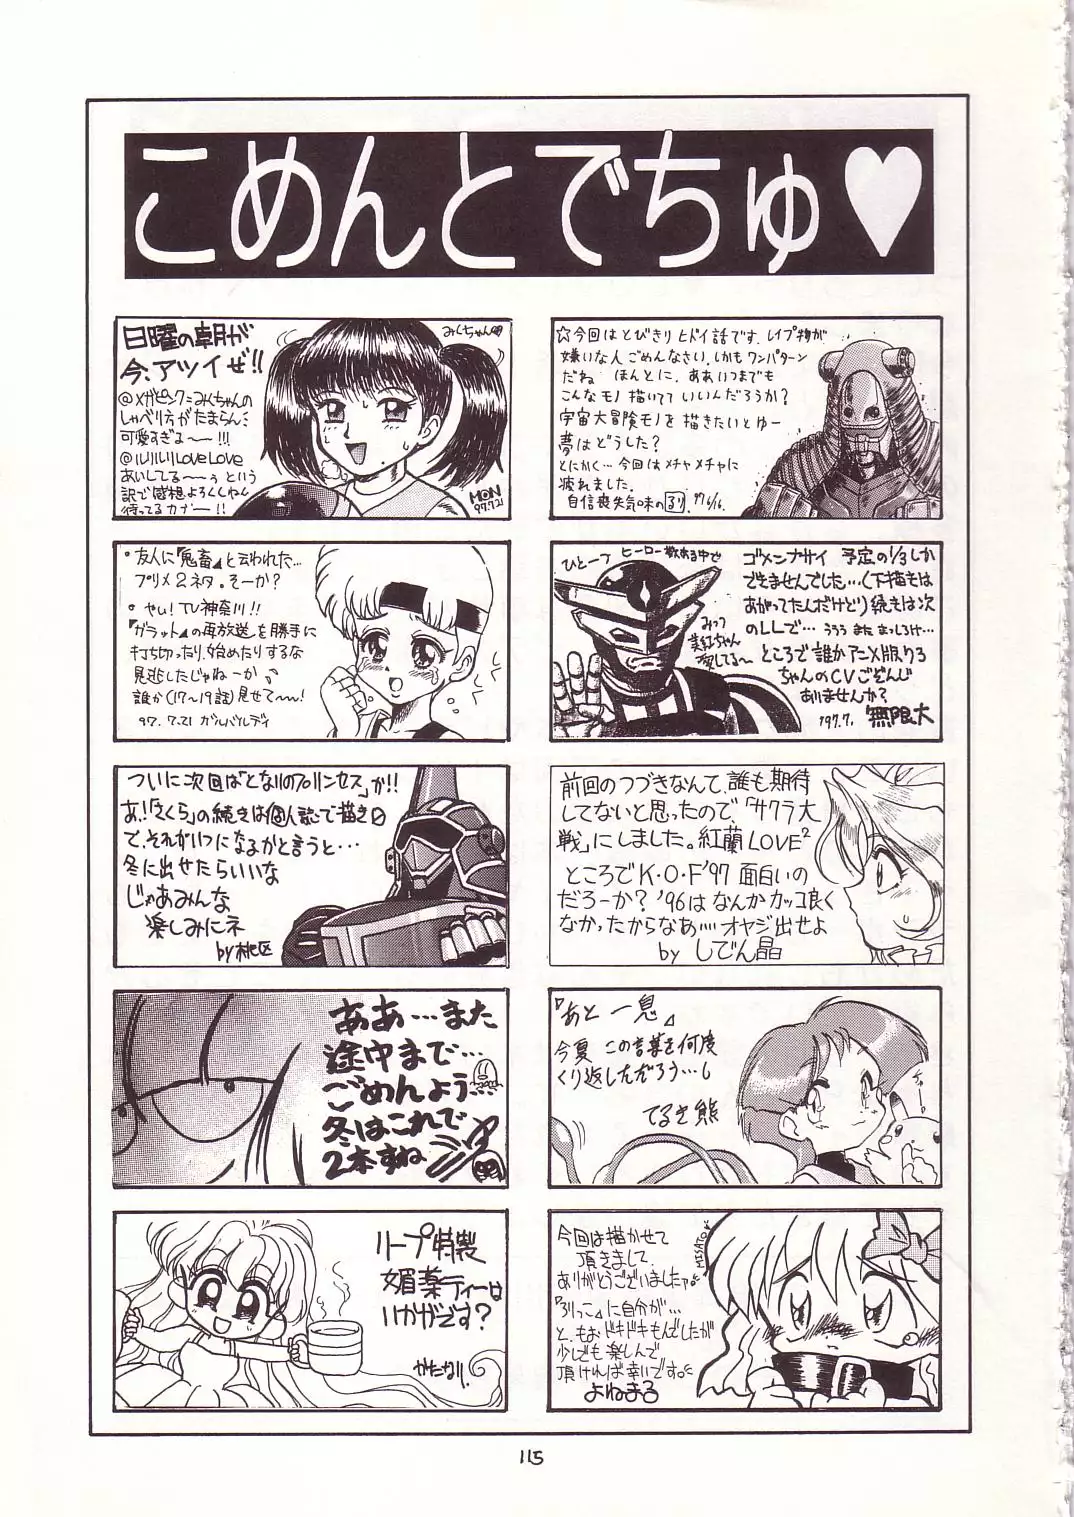 こめんとでちゅ♥
☆今回はとびきりヒドイ話です。レイプ物が
嫌いな人ごめんなさい。しかもワンパターン
だね ほんとに。ああいつまでも
こんなモノ描いてていいんだろうか?
宇宙大冒険モノを描きたいとゆー
夢はどうした?
とにかく…今回はメチャメチャに
疲れました。
自信喪失気味の るり. 97 6/16.
日曜の朝が
今、アツイぜ!!
みくちゃん
@メガピンク=みくちゃんの
しゃべり方がたまらん
可愛すぎる〜!!!
@ルリルリLOVELOVE
あいしてる〜ぅ という
訳で感想よろしくしゃん
待ってるカナー!!
MON
97.7.21
ひとーつ ヒーロー数ある中で
みっつ
美紅ちゃん
愛してる〜
ゴメンナサイ 予定の1/3しか
できませんでした…(下描きは
あがってたんだけど)続きは次
のLLで… うううまたまっしろけ…
ところで誰かアニメ版クろ
ちゃんのCVごぞんじ
ありませんか?
'97.7. 無限大
・友人に『鬼畜』と云われた…
プリメ2ネタ。そーか?
・やい! TV神奈川!!
『ガラット』の再放送を勝手に
打ち切ったり、始めたりするな
見逃したじゃねーか
誰か(17〜19話)見せて〜!
97. 7.21 ガルバルディ
前回のつづきなんて、誰も期待
してないと思ったので、「サクラ大
戦」にしました。紅蘭LOVE²
ところでK・O・F'97 面白いの
だろーか? '96はなんかカッコ良く
なかったからなあ…… オヤジ出せよ
by しでん晶
ついに次回は「となりのプリンセス」か!!
あ、「さくら」の続きは個人誌で描き
で、それがいつになるかと言うと…
冬に出せたらいいな
じゃあみんな
楽しみにネ
by 桃区
『あと一息』
今夏 この言葉を何度
くり返しただろう…
てるき熊
チャー
ああ…また
途中まで…
ごめんよう
冬はこれで
2本すね
今回は描かせて
頂きまして
ありがとうございましたァ
『ぶりっこ』に自分が…
と、もおドキドキもんでしたが
少しでも楽しんで
頂ければ幸いです。
よねまる
MISATO
リープ特製
媚薬ティーは
いかがです?
かたなり.
115